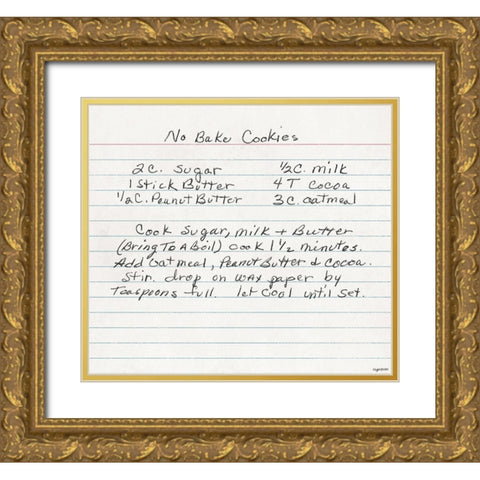 No Bake Cookies
2 C. Sugar ½ C. milk
1 Stick Butter 4 T cocoa
½ C. Peanut Butter 3 C. oatmeal
Cook Sugar, milk + Butter
(Bring To A Boil) Cook 1½ minutes.
Add Oatmeal, Peanut Butter & Cocoa.
Stir. drop on wax paper by
Teaspoons full. let cool until set.